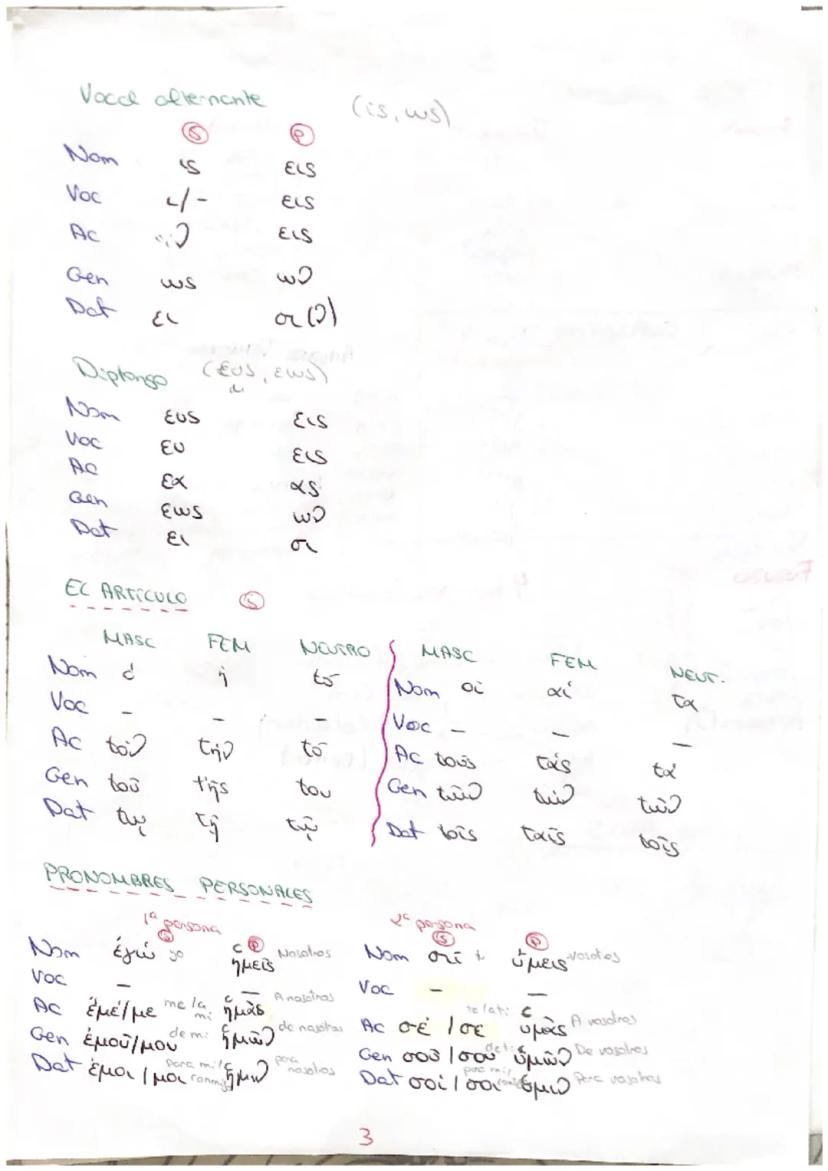 Vocal alternante (ις, ως)
Ⓢ Ⓟ
Nom ις εις
Voc ι/- εις
Ac ιν εις
Gen ως ων
Dat ει σι (ν)
Diptongo (ευς, εως)
Nom ευς εις
Voc ευ εις
Ac εα ας
Gen εως ων
Dat ει σι
EL ARTÍCULO Ⓢ
MASC FEM NEUTRO MASC FEM NEUT.
Nom ὁ ἡ τό Nom οἱ αἱ τα
Voc - - - Voc - - -
Ac τόν τήν τό Ac τούς τάς τά
Gen τοῦ τῆς του Gen τῶν τῶν τῶν
Dat τῳ τῇ τῷ Dat τοῖς ταῖς τοῖς
PRONOMBRES PERSONALES
1ª persona 2ª persona
Ⓢ Ⓟ Ⓢ Ⓟ
Nom ἐγώ yo ἡμεῖς Nosotros Nom σύ tú ὑμεις vosotros
Voc - - Voc - -
Ac ἐμέ/με me/a mi ἡμᾶς A nosotros Ac σέ/σε te/a ti ὑμᾶς A vosotros
Gen ἐμοῦ/μου de mi ἡμῶν de nosotros Gen σοῦ/σου de ti ὑμῶν De vosotros
Dat ἐμοι/μοι para mi/conmigo ἡμιν para nosotros Dat σοί/σοι para mi/ ὑμιν Para vosotros
3